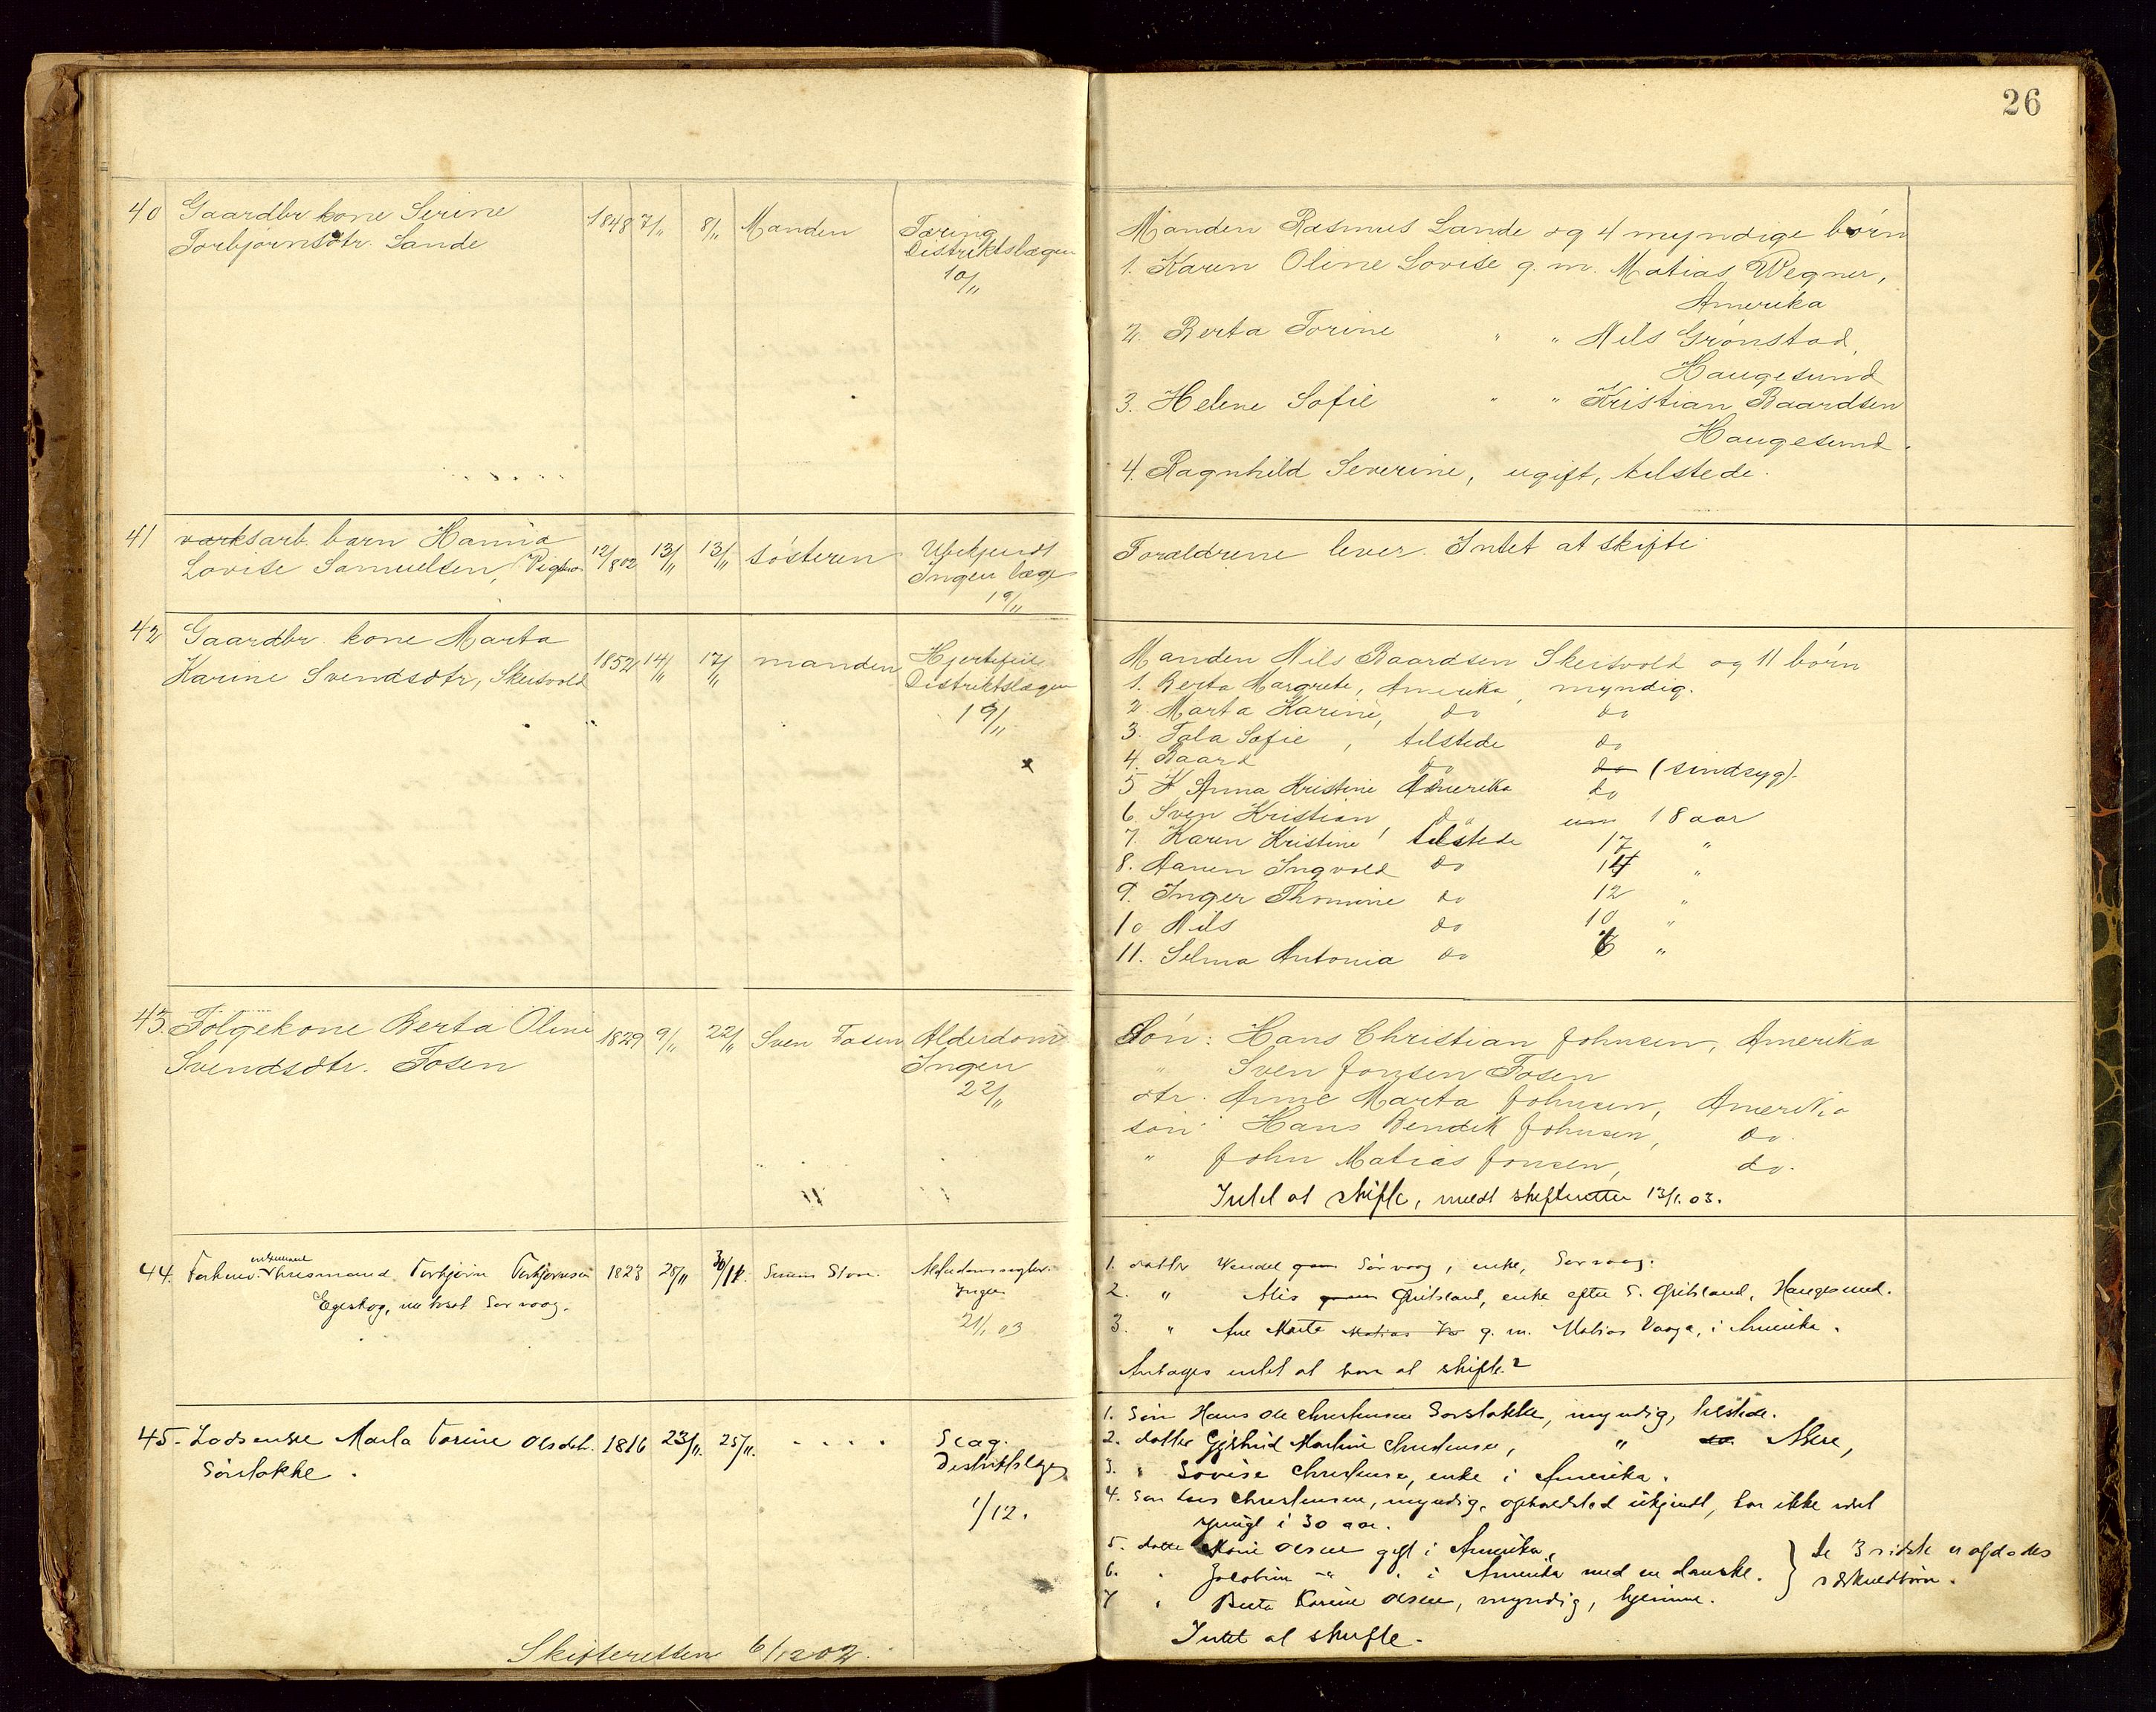 26
40 Gaardbr kone Serine
Torbjørnsdtr. Sande
1848 7/11 8/11 Manden
Tæring
Distriktslægen
10/11
Manden Rasmus Sande og 4 myndige børn
1. Karen Oline Lovise g. m. Matias Wegner,
Amerika
2. Berta Torine " " Nils Grønstad,
Haugesund
3. Helene Sofie " " Kristian Baardsen
Haugesund.
4. Ragnhild Severine, ugift, tilstede.
41 værksarb. barn Hanna
Lovise Samuelsen,
12/8 02 13/11 13/11 søsteren
Ubekjendt
Ingen læge
19/11
Forældrene lever. Intet at skifte
42 Gaardbr. kone Marta
Karine Svendsdtr, Skeisvold
1852 14/11 17/11 manden
Hjertefeil
Distriktslægen
19/11
Manden Nils Baardsen Skeisvold og 11 børn
1. Berta Margrete, Amerika, myndig.
2. Marta Karine, do do
3. Tala Sofie, tilstede do
4. Baard do do (sindsyg).
5 Anna Kristine Amerika do
6. Sven Kristian, do um 18 aar
7. Karen Kristine tilstede 17 "
8. Aanen Ingvald do 14 "
9. Inger Thomine do 12 "
10 Nils do 10 "
11. Selma Antonia do 6 "
43. Følgekone Berta Oline
Svendsdtr. Fosen
1829 9/11 22/11 Sven Fosen
Alderdom
Ingen
22/11
Søn: Hans Christian Johnsen, Amerika
" Sven Jonsen Fosen
dtr. Anne Marta Johnsen, Amerika
søn: Hans Bendik Johnsen, do.
" John Matias Jonsen, do.
Intet at skifte, meldt skifteretten 13/1.03.
44. Forhenv. husmand Torbjørn Torbjørnsen
Egeskog, Sørvaag.
1823 28/11
Ingen
21/1 03
1. datter Sørvaag, enke, Sørvaag.
2. " enke efter S. Haugesund.
3. " Ane Marta g. m. Matias Vaaga, i Amerika.
Antages intet at være at skifte?
45. Lodsenke Marta Torine Olsdtr.
Sørstokke.
1816 23/11. 25/11. - - - -
Slag.
Distriktslægen
1/12.
1. Søn Hans Ole Christensen Sørstokke, myndig, tilstede.
2. datter Gjertrud Martine Christensen, " Akre,
3. " Lovise Christensen, enke i Amerika.
4. Søn Lars Christensen, myndig, opholdssted ukjendt, har ikke
i 30 aar.
5. datter Marie Olsen gift i Amerika,
6. " Jacobine " i Amerika med en danske.
7 " Berta Karine Olsen, myndig, hjemme.
De 3 sidste er afdødes
særkuldbørn.
Intet at skifte.
Skifteretten 6/12 02.